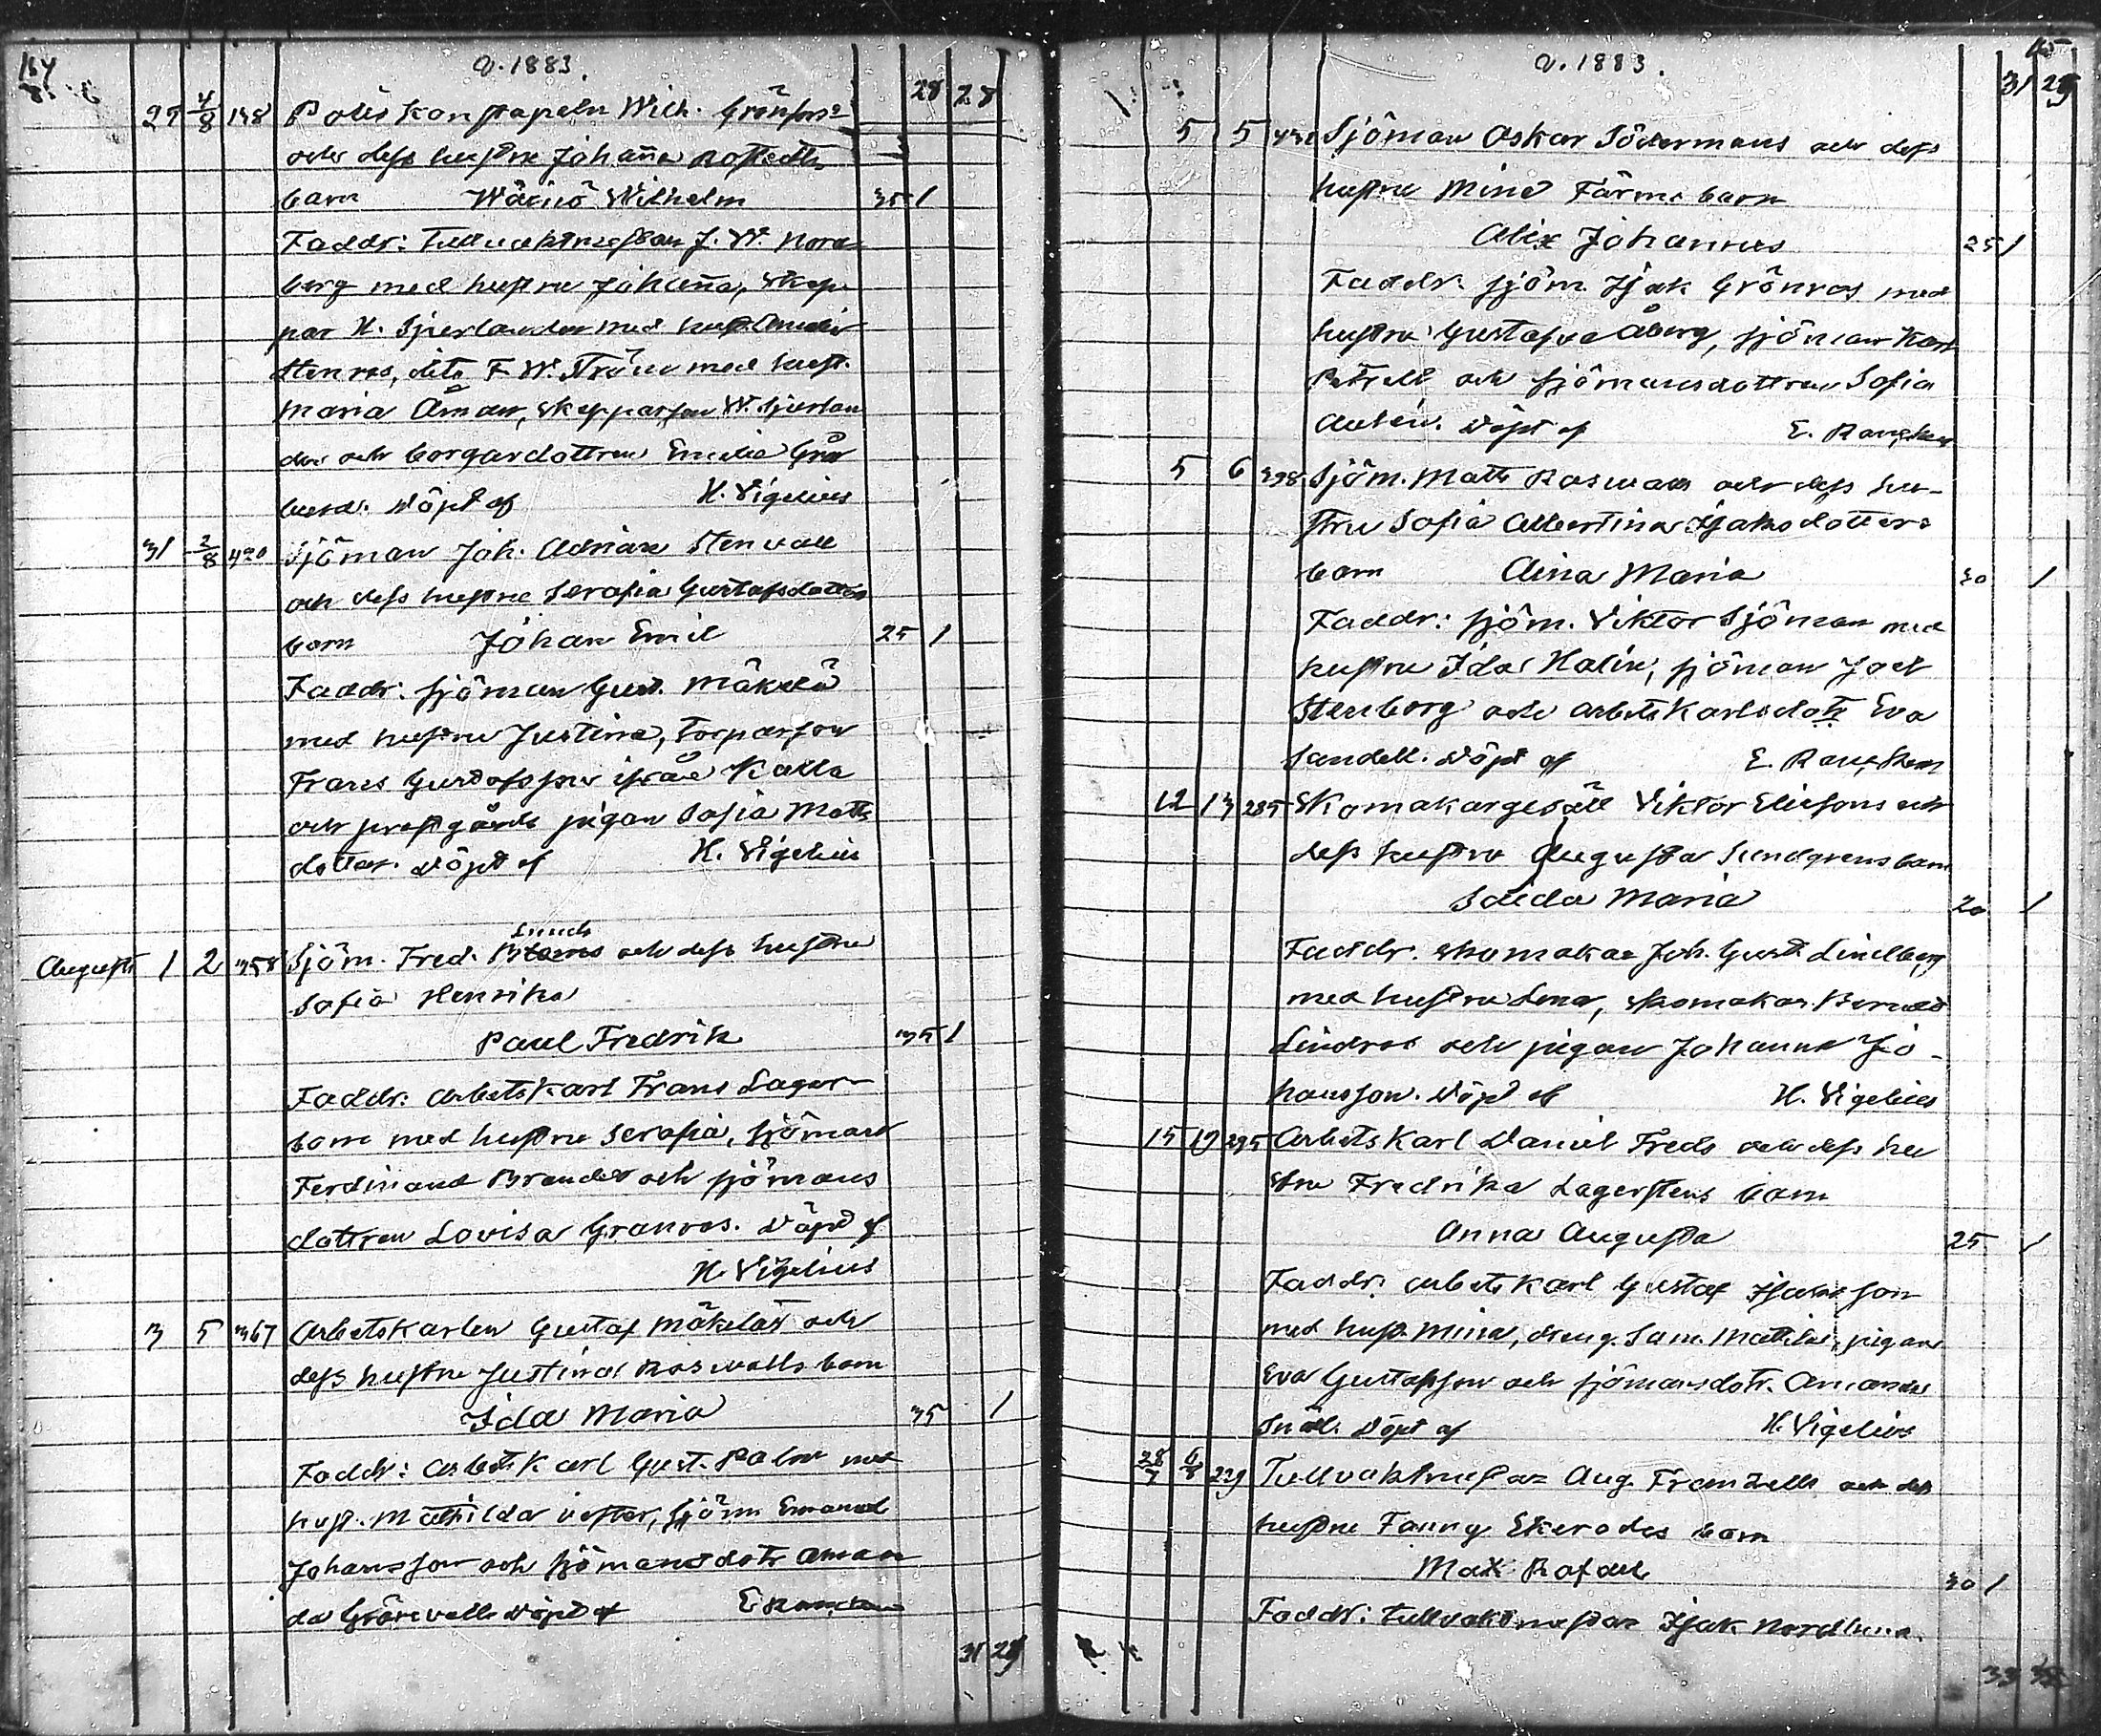 a. 1883.
28 28
27 4/8 148 Poliskonstapeln Wilh. Grönfors
och dess hustru Johanna
barn Wäinö Wilhelm 35 1
Faddr: J. W. Nord-
berg med hustru Johanna, skep-
par H. Sjerlander med hust. Amalia
Stenros, dito F W. Ström med hust.
Maria Åman, skepparson W. Sjerlan
der och borgardottren Emilia Grön
lund. Döpt af H. Vigelius
31 2/8 420 Sjöman Joh. Adrian Stenvall
och dess hustru Serafia Gustafsdotters
barn Johan Emil 25 1
Faddr: sjöman Gust. Mäkelä
med hustru Justina, torparson
Frans Gustafsson ifrån Kalla
och prestgårds pigan Sofia Matts
dotter. Döpt af H. Vigelius
Augusti 1 2 358 Sjöm. Fred. Lunds och dess hustru
Sofia Henrika
Paul Fredrik 35 1
Faddr: arbetskarl Frans Lager-
bom med hustru Serafia, sjöman
Ferdinand Brander och sjömans
dottren Lovisa Granros. Döpt af
H. Vigelius
3 5 367 Arbetskarlen Gustaf Mäkeläs och
dess hustru Justina Roswalls barn
Ida Maria 35 1
Faddr: arbetskarl Gust. Palm med
hust. Mathilda, sjöm Emanuel
Johansson och sjömansdotr Aman
da Grönvall. Döpt af
31 29
a. 1883.
31 29
5 5 Sjöman Oskar Södermans och dess
hustru Mina Färms barn
Alix Johannes 25 1
Faddr. sjöm. Isak Grönros med
hustru Gustafva Åberg, sjöman Karl
Petrell och sjömansdottren Sofia
Antin. Döpt af E. Rancken
5 6 398 Sjöm. Matts Roswals och dess hu-
stru Sofia Albertina Isaksdotters
barn Aina Maria 30 1
Faddr: sjöm. Viktor Sjöman med
hustru Ida Malin, sjöman Joel
Stenborg och arbetskarlsdotr Eva
Sandell. Döpt af E. Rancken
12 13 285 Skomakargesäll Viktor Eliesons och
dess hustru Augusta Sundgrens barn
Saida Maria 20 1
Faddr. skomakar Joh. Gust. Lindberg
med hustru Lena, skomakar Bernhard
Lindros och pigan Johanna Jo-
hansson. Döpt af H. Vigelius
15 19 295 Arbetskarl Daniel Freds och dess hu
stru Fredrika Lagerstens barn
Anna Augusta 25 1
Faddr: arbetskarl Gustaf Isaksson
med hust. Mina, dreng. Sam. Mattila, pigan
Eva Gustafsson och sjömansdotr. Amanda
Snäll. Döpt af H. Vigelius
28/7 6/8 229 Tullvaktmästar Aug. Franzells och dess
hustru Fanny Ekerodes barn
Max Rafael 30 1
Faddr: tullvaktmästar Isak Nordlund
33